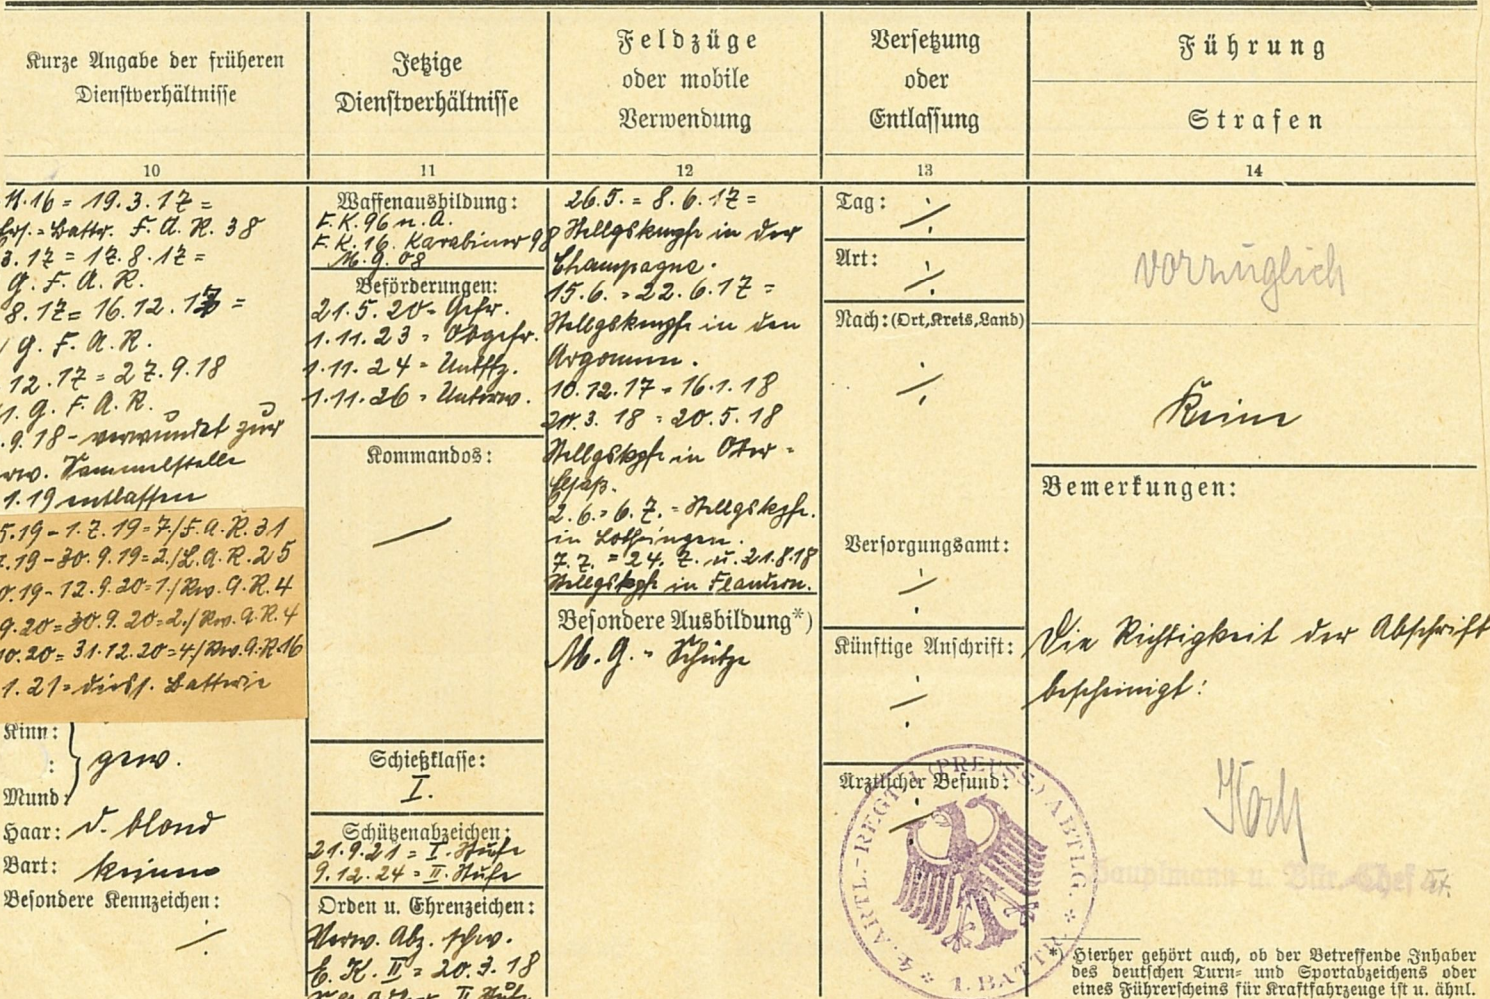 Kurze Angabe der früheren
Dienstverhältnisse
10
11.16 = 19.3.17 =
Ers. = Battr. F. A. R. 38
3.17 = 17.8.17 =
G. F. A. R.
8.17 = 16.12.17 =
G. F. A. R.
12.17 = 27.9.18
1. G. F. A. R.
.9.18 - verwundet zur
Sammelstelle
1.19 entlassen
5.19 - 1.7.19 = 7./F.A.R. 31
7.19 - 30.9.19 = 2./L.A.R. 25
0.19 - 12.9.20 = 1./Rw. A.R. 4
9.20 = 30.9.20 = 2./Rw. A.R. 4
10.20 = 31.12.20 = 4./Rw. A.R. 16
1.21 = diess. Batterie
Kinn:
: } gew.
Mund:
Haar: d. blond
Bart: keinen
Besondere Kennzeichen:
./.
Jetzige
Dienstverhältnisse
11
Waffenausbildung:
F. K. 96 n. A.
F. K. 16. Karabiner 98
M. G. 08
Beförderungen:
21.5.20 = Gefr.
1.11.23 = Obgefr.
1.11.24 = Untffz.
1.11.26 = Unterw.
Kommandos:
Schießklasse:
I.
Schützenabzeichen:
21.9.21 = I. Stufe
9.12.24 = II. Stufe
Orden u. Ehrenzeichen:
Verw. Abz. schw.
E. K. II = 20.3.18
II. Stufe
Feldzüge
oder mobile
Verwendung
12
26.5. = 8.6.17 =
Stellgskmpfe in der
Champagne.
15.6. = 22.6.17 =
Stellgskmpfe in den
Argonnen.
10.12.17 = 16.1.18
20.3.18 = 20.5.18
Stellgskpfe in Ober =
Elsaß.
2.6. = 6.7. = Stellgskpfe.
in Lothringen.
7.7. = 24.7. u. 21.8.18
Stellgskpfe in Flandern.
Besondere Ausbildung*)
M. G. = Schütze
Versetzung
oder
Entlassung
13
Tag: ./.
Art: ./.
Nach: (Ort, Kreis, Land)
./.
Versorgungsamt:
./.
Künftige Anschrift:
./.
Ärztlicher Befund:
./.
Führung
Strafen
14
vorzüglich
Keine
Bemerkungen:
Die Richtigkeit der Abschrift
bescheinigt:
Koch
Hauptmann u. Bttr. Chef
4. ARTL.-REGT. (PREUSS.) ABTLG.
1. BATTR.
*) Hierher gehört auch, ob der Betreffende Inhaber
des deutschen Turn- und Sportabzeichens oder
eines Führerscheins für Kraftfahrzeuge ist u. ähnl.